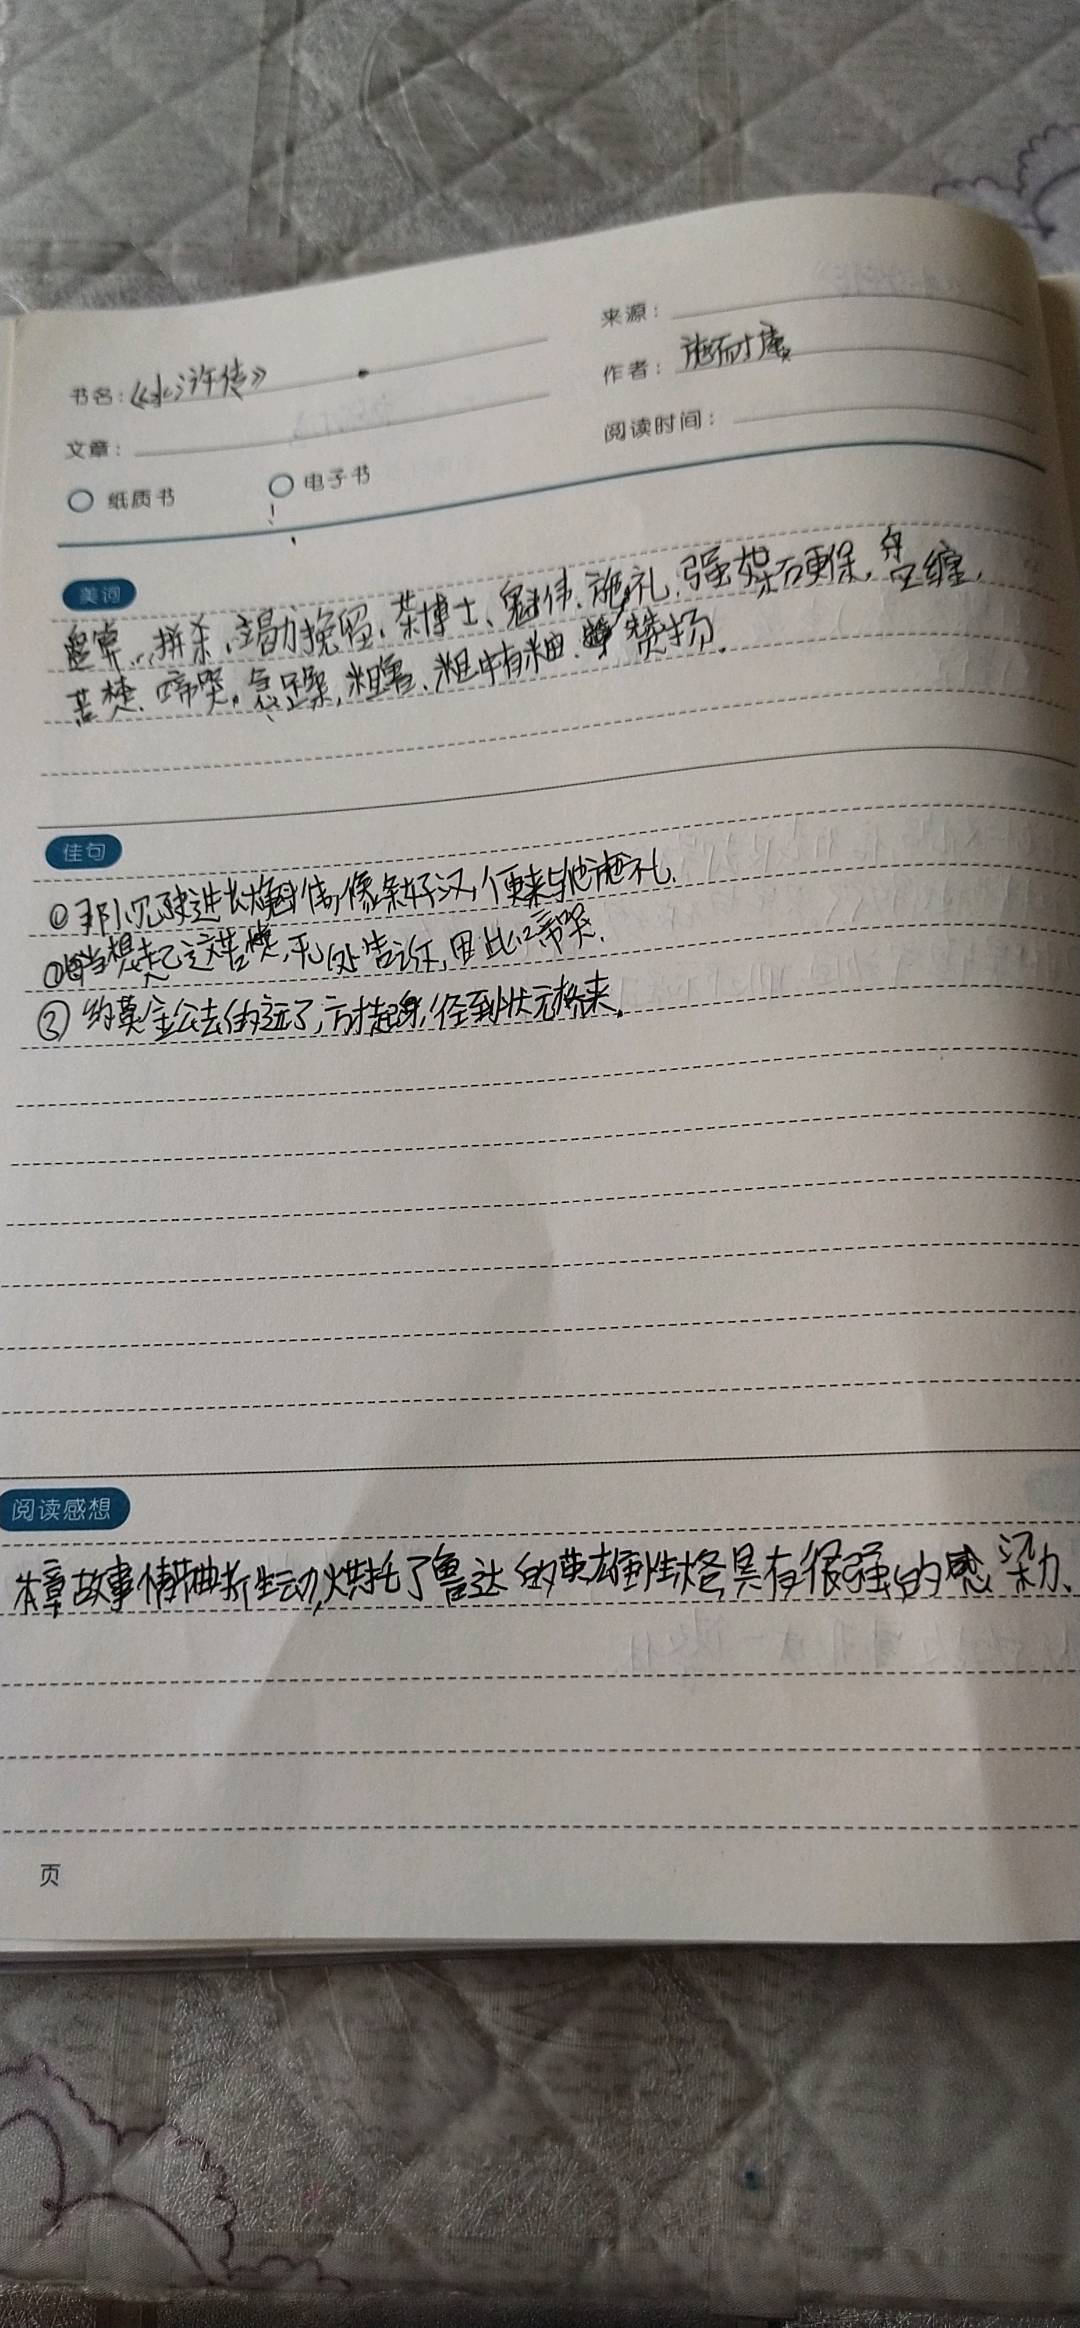 来源：
书名：《水浒传》
作者：施耐庵
文章：
阅读时间：
纸质书
电子书
美词
拼杀、竭力挽留、茶博士、魁伟、施礼、强媒硬保、盘缠，
苦楚、啼哭，急躁，粗鲁、粗中有细、赞扬。
佳句
①那见史进长大魁伟，像条好汉，便来与他施礼．
②想起这苦楚，无处告诉，因此啼哭．
③约莫金公去的远了，方才起身，径到状元桥来。
阅读感想
本章故事情节曲折生动，烘托了鲁达的英雄性格具有很强的感染力、
页